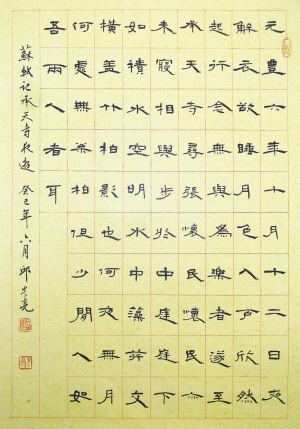 元豐六年十月十二日夜
解衣欲睡月色入戶欣然
起行念無與為樂者遂至
承天寺尋張懷民懷民亦
未寢相與步於中庭庭下
如積水空明水中藻荇交
橫蓋竹柏影也何夜無月
何處無竹柏但少閒人如
吾兩人者耳
蘇軾記承天寺夜遊 癸巳年六月邱